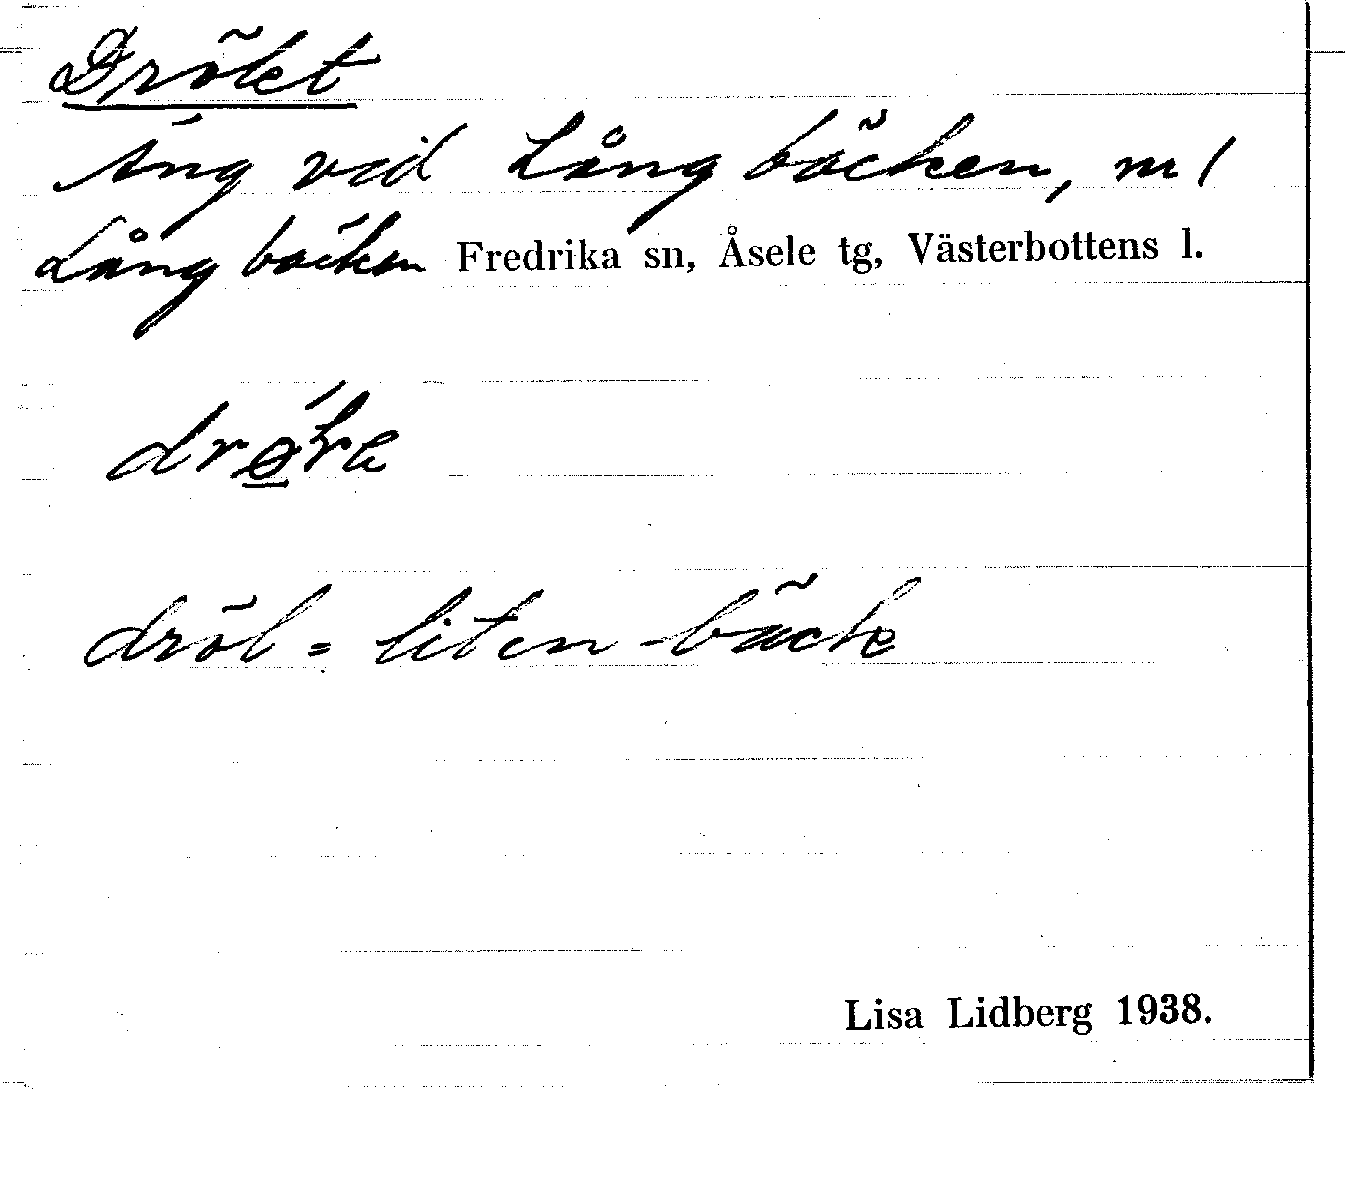 Drölet
Äng vid Långbäcken, nr 1
Långbäcken Fredrika sn, Åsele tg, Västerbottens l.
dröl = liten bäck
Lisa Lidberg 1938.